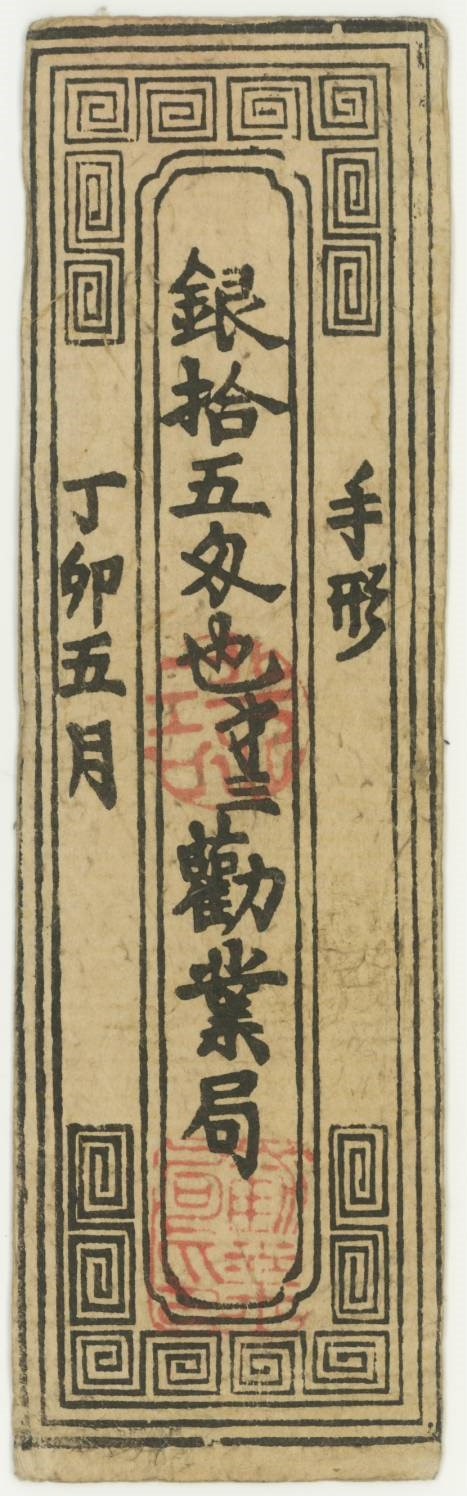 手形
銀拾五匁也
勸業局
丁卯五月